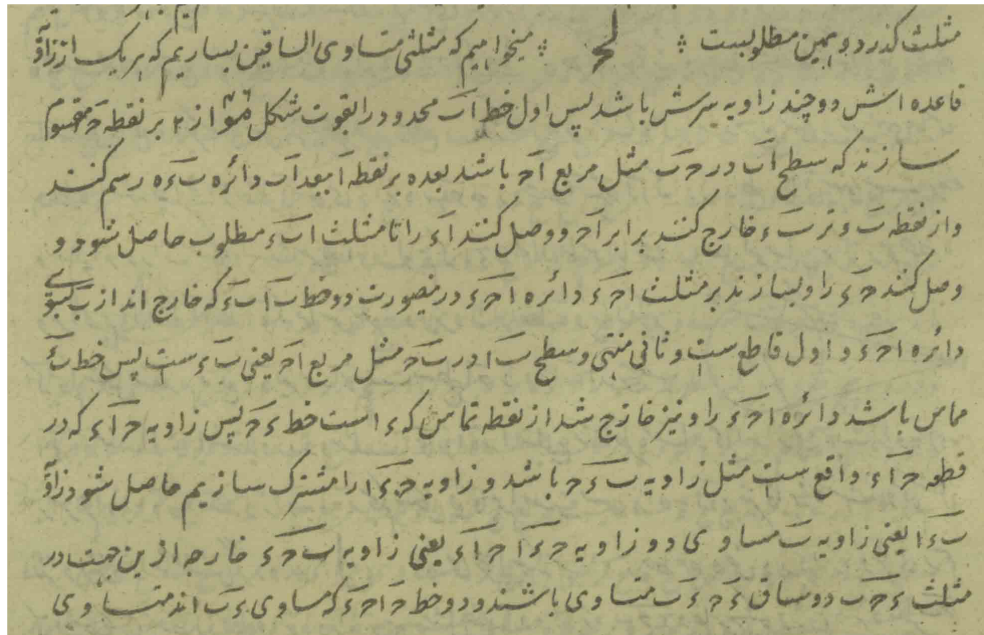 مثلث گذرد و همین مطلوبست ؞ لح ؞ میخواهیم که مثلثی متساوی الساقین بسازیم که هر یک از زاویه
قاعده اش دو چند زاویه سرش باشد پس اول خط اب محدود را بقوت شکل از ۲ بر نقطه ح مقسوم
سازند که سطح اب در حب مثل مربع اح باشد بعده بر نقطه ا ببعد اب دائره بءه رسم کنند
و از نقطه ب وتر بء خارج کنند برابر اح و وصل کنند اء را تا مثلث ابء مطلوب حاصل شود و
وصل کنند حء را و بسازند بر مثلث احء دائره احء درینصورت دو خط با بء که خارج اند از ب بسوی
دائره احء و اول قاطع ست و ثانی منتهی و سطح با در بح مثل مربع اح یعنی بء ست پس خط بء
مماس باشد دائره احء را و نیز خارج شد از نقطه تماس که ء است خط ءح پس زاویه حاء که در
قطعه حاء واقع ست مثل زاویه بءح باشد و زاویه حءا را مشترک سازیم حاصل شود زاویه
بءا یعنی زاویه ب مساوی دو زاویه حءا حاء یعنی زاویه بحء خارجه ازین جهت در
مثلث ءحب دو ساق ءح ءب متساوی باشند و دو خط حا حء که مساوی ءب اند متساوی